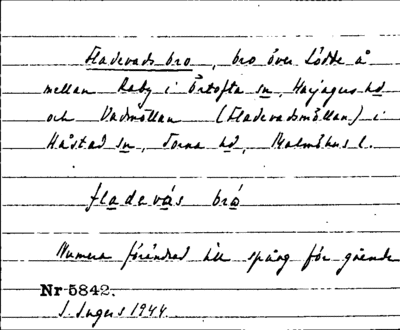 Fladevads bro, bro över Lödde å
mellan Raby i Örtofta sn, Harjagers hd
och Vadmöllan (Fladevadsmöllan) i
Håstad sn, Torna hd, Malmöhus l.
fladevás brö
Numera förändrad till spång för gående
Nr 5842.
I. Ingers 1944